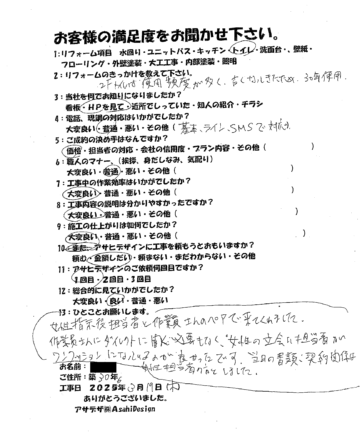 お客様の満足度をお聞かせ下さい。
1:リフォーム項目　水廻り・ユニットバス・キッチン・トイレ・洗面台・、壁紙・
フローリング・外壁塗装・大工工事・内部塗装・照明
2:リフォームのきっかけを教えて下さい。
使用頻度が多く、古くなってきたため、30年使用
3:当社を何でお知りになりましたか?
看板・HPを見て・近所でしっていた・知人の紹介・チラシ
4:電話、現調の対応はいかがでしたか?
大変良い・普通・悪い・その他(基本、ライン、SMSで対応
5:ご成約の決め手はなんですか?
価格・担当者の対応・会社の信用度・プラン内容・その他(　)
6:職人のマナー、(挨拶、身だしなみ、気配り)
大変良い・普通・悪い・その他(　)
7:工事中の作業効率はいかがでしたか?
大変良い・普通・悪い・その他(　)
8:工事内容の説明は分かりやすかったですか?
大変良い・普通・悪い・その他(　)
9:施工の仕上がりは如何でしたか?
大変良い・普通・悪い・その他(　)
10:また、アサヒデザインに工事を頼もうとおもいますか?
頼む・金額しだい・頼まない・まだわからない・その他
11:アサヒデザインのご依頼何回目ですか?
1回目・2回目・3回目
12:総合的に見ていかがでしたか?
大変良い・良い・普通・悪い
13:ひとことお願いします。
女性指示役担当者と作業員さんのペアで来てくれました。
作業員さんにダイレクトに聞く必要もなく、女性の立会いに担当者が
ワンクッションになっているのが良かったです。当日の書類、契約関係は
女性担当者がメインでした。
お名前:
ご住所:築30年
工事日 2025年3月19日(水)
ありがとうございました。
アサヒデザ㈱AsahiDesign